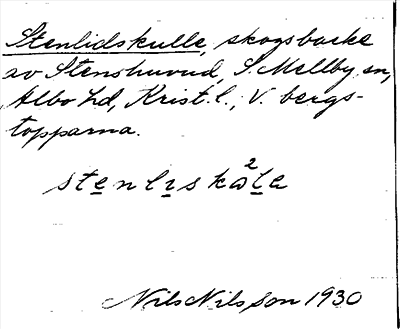 Stenlidskulle, skogsbacke
av Stenshuvud, S. Mellby sn,
Albo hd, Krist. l., V. bergs-
topparna.
stenlıskɷ²le
Nils Nilsson 1930